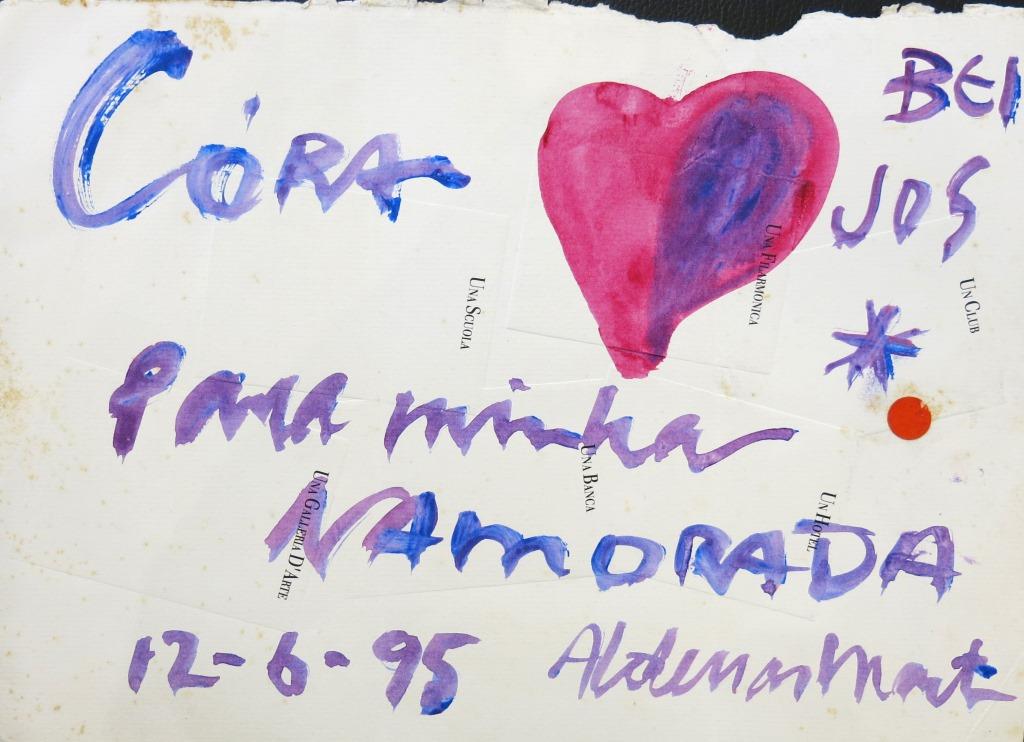 CÓRA
BEI
JOS
Para minha
NAMORADA
12-6-95 Aldemir Martins
UNA SCUOLA
UNA FILARMONICA
UN CLUB
UNA GALLERIA D'ARTE
UNA BANCA
UN HOTEL